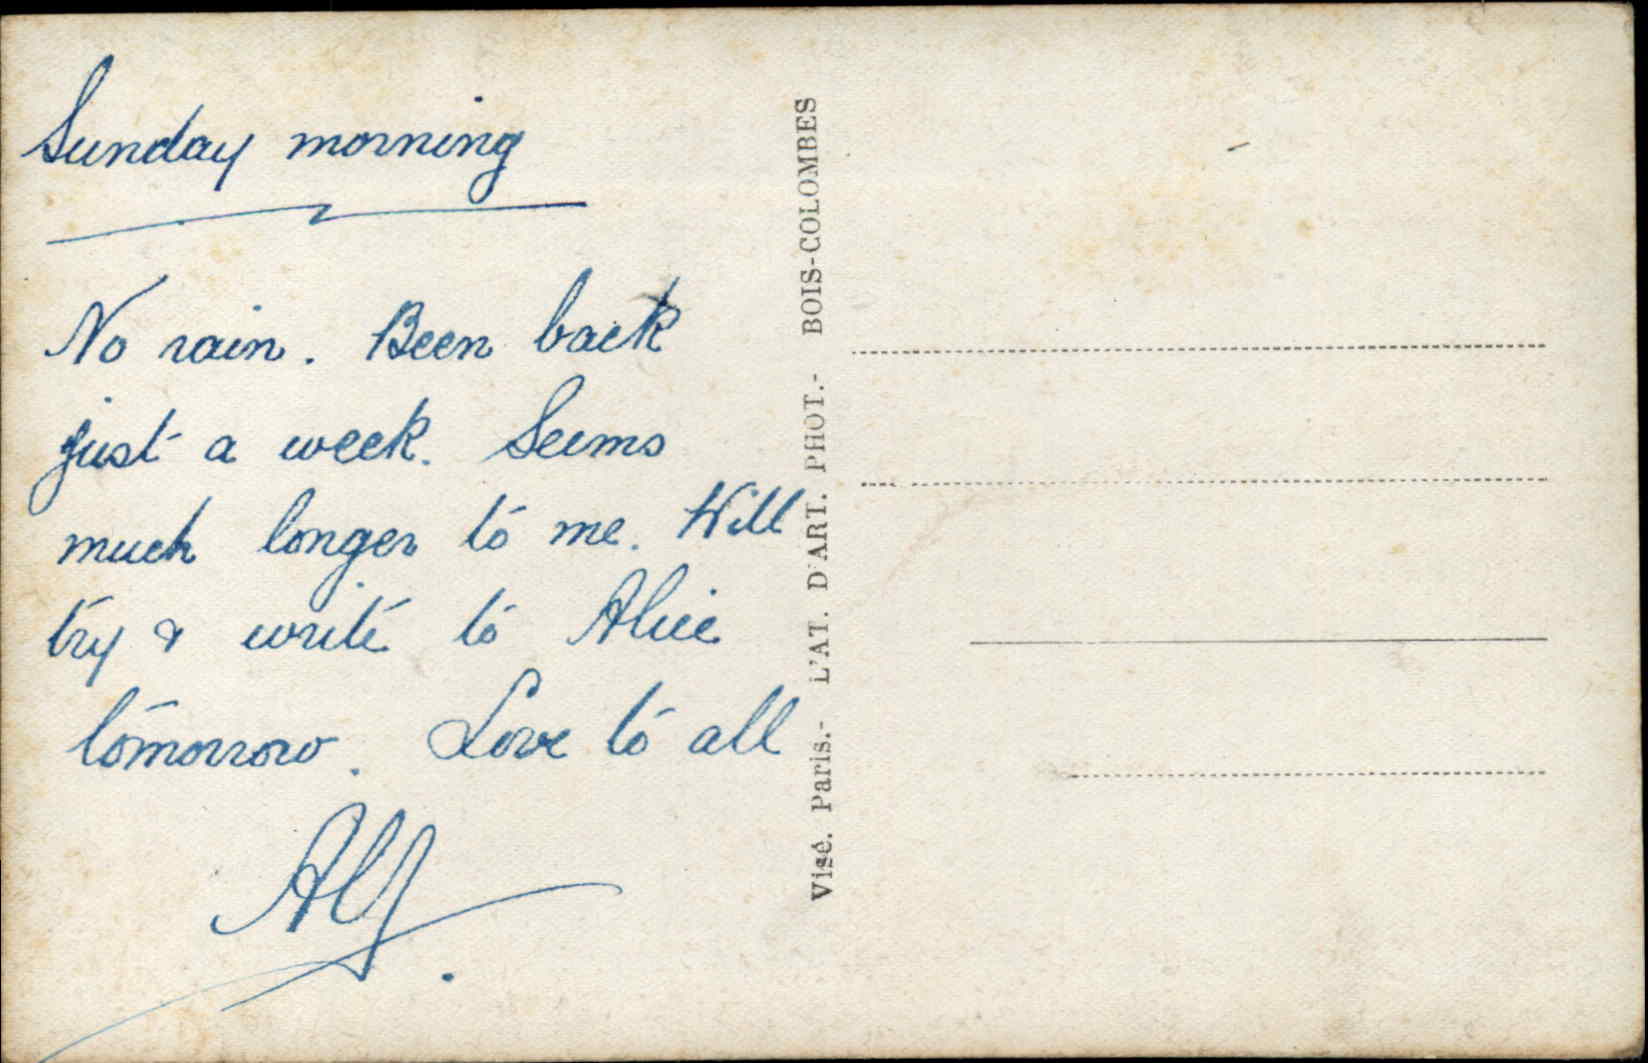 Sunday morning
No rain. Been back
just a week. Seems
much longer to me. Will
try & write to Alice
tomorrow. Love to all
Alf.
Visé. Paris.- L'AT. D'ART. PHOT.- BOIS-COLOMBES